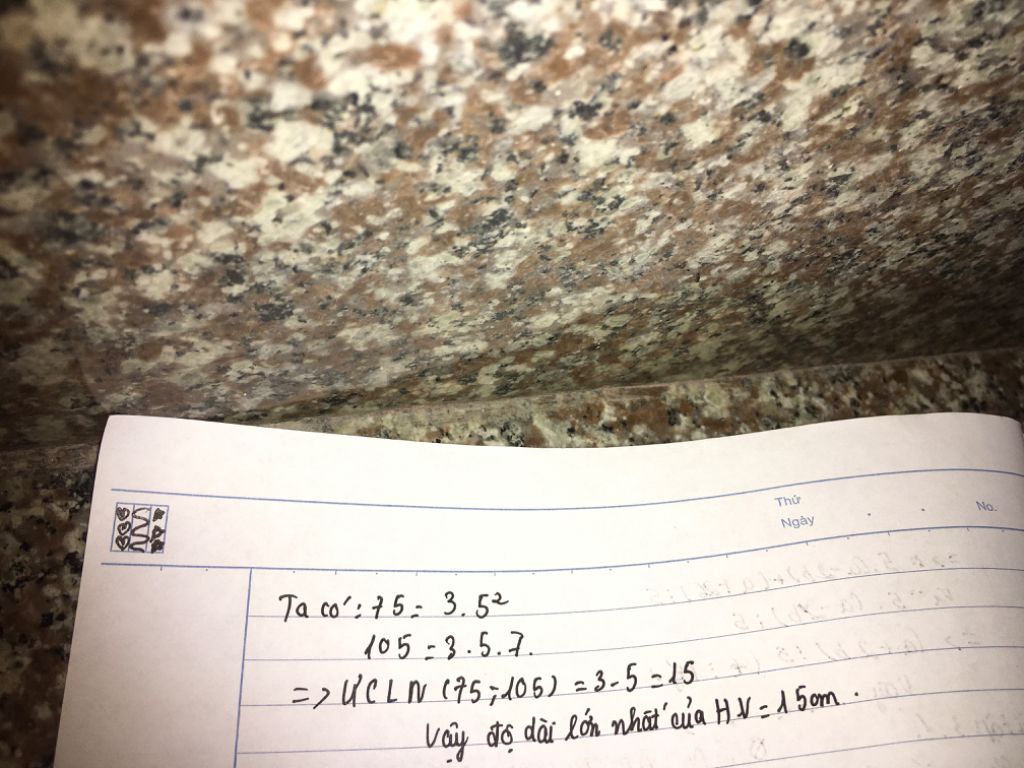 Thứ
Ngày . . No.
Ta có: 75 = 3.5²
105 = 3.5.7.
=> ƯCLN (75;105) = 3-5 = 15
Vậy độ dài lớn nhất của HV = 15cm.